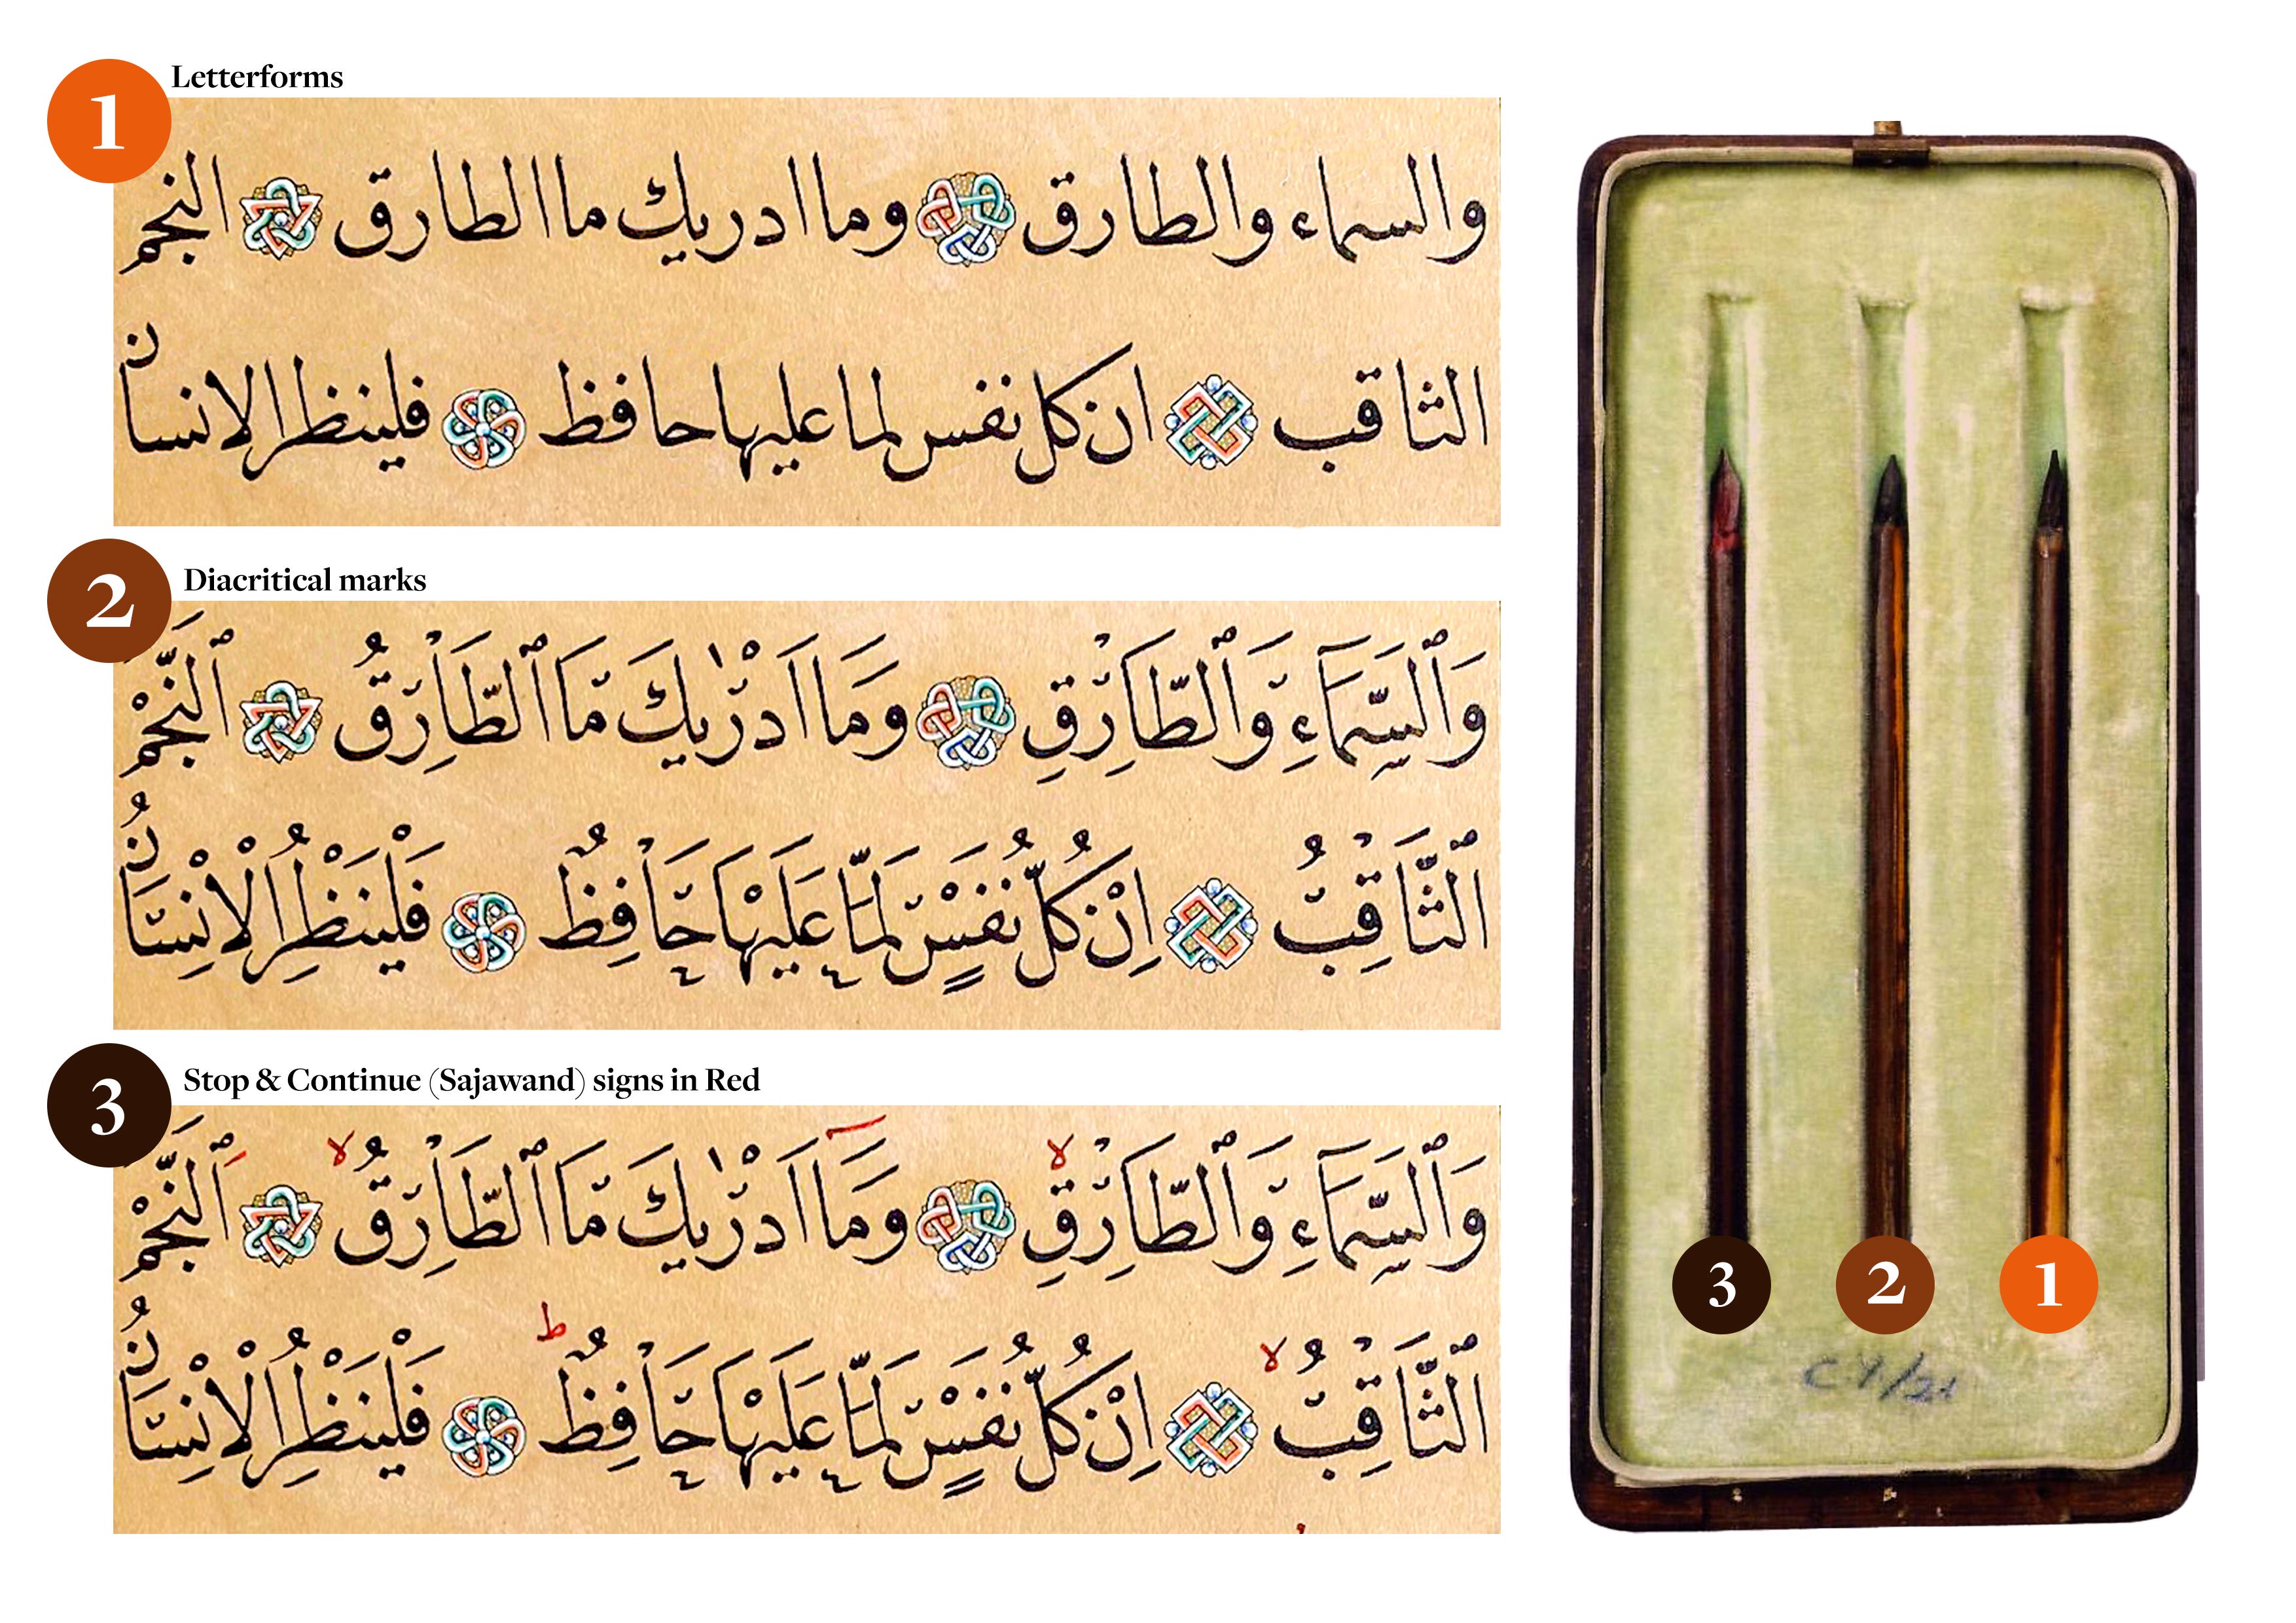 1
Letterforms
والسماء والطارق وما ادريك ما الطارق النجم
الثاقب ان كل نفس لما عليها حافظ فلينظر الانسان
2
Diacritical marks
وَٱلسَّمَٓاءِ وَٱلطَّارِقِ وَمَا اَدْرٰيكَ مَا ٱلطَّارِقُ ٱلنَّجْمُ
ٱلثَّاقِبُ اِنْ كُلُّ نَفْسٍ لَمَّا عَلَيْهَا حَافِظٌ فَلْيَنْظُرِ الْاِنْسَانُ
3
Stop & Continue (Sajawand) signs in Red
وَٱلسَّمَٓاءِ وَٱلطَّارِقِ لا وَمَٓا اَدْرٰيكَ مَا ٱلطَّارِقُ لا ٱلنَّجْمُ
ٱلثَّاقِبُ لا اِنْ كُلُّ نَفْسٍ لَمَّا عَلَيْهَا حَافِظٌ ط فَلْيَنْظُرِ الْاِنْسَانُ
3 2 1